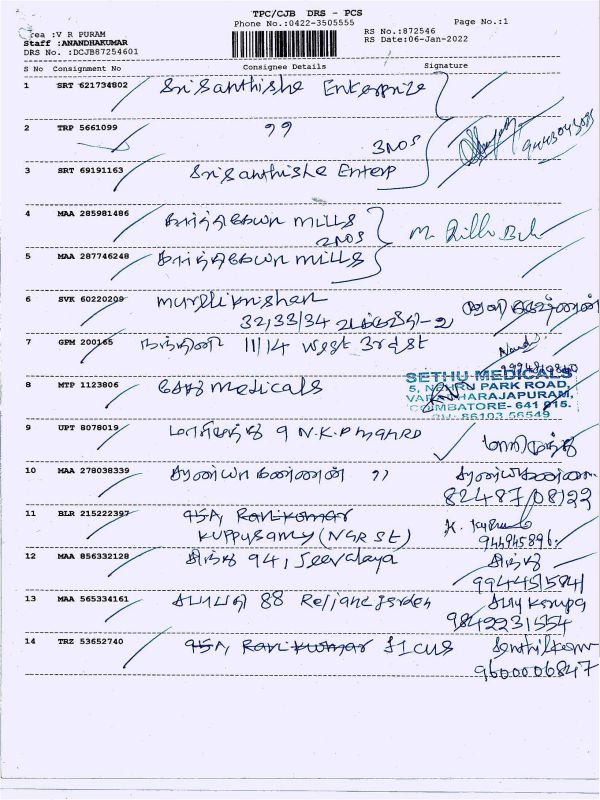 TPC/CJB DRS - PCS
Phone No.:0422-3505555
Page No.:1
Area :V R PURAM
Staff :ANANDHAKUMAR
DRS No. :DCJB87254601
RS No.:872546
RS Date:06-Jan-2022
S No Consignment No Consignee Details Signature
1 SRT 621734802 SriSanthishe Enterprize
2 TRP 5661099 "
3NOS
9443043035
3 SRT 69191163 SriSanthishe Enterp
4 MAA 285981486 கார்த்திகேயா mills
2NOS
5 MAA 287746248 கார்த்திகேயா mills
6 SVK 60220209 murllikrishan
32,33/34
7 GPM 200165 நந்தினி 11/14 West 3rd st
8 MTP 1123806 சேது medicals
SETHU MEDICALS
5, NEHRU PARK ROAD,
VARADHARAJAPURAM,
COIMBATORE- 641 015.
86103 56549
9 UPT 8078019 மாரிமுத்து 9 N.K.P
மாரிமுத்து
10 MAA 278038339 சரண்யா கண்ணன் "
82487 08122
11 BLR 215222397 95A, Ravi kumar
Kuppusamy (NGR St)
944945896
12 MAA 856332128 சிந்து 94, Jeevalaya
சிந்து
9944515841
13 MAA 565334161 சபாபதி 88 Reliance garden
9842231554
14 TRZ 53652740 95A, Ravi kumar
9600006847